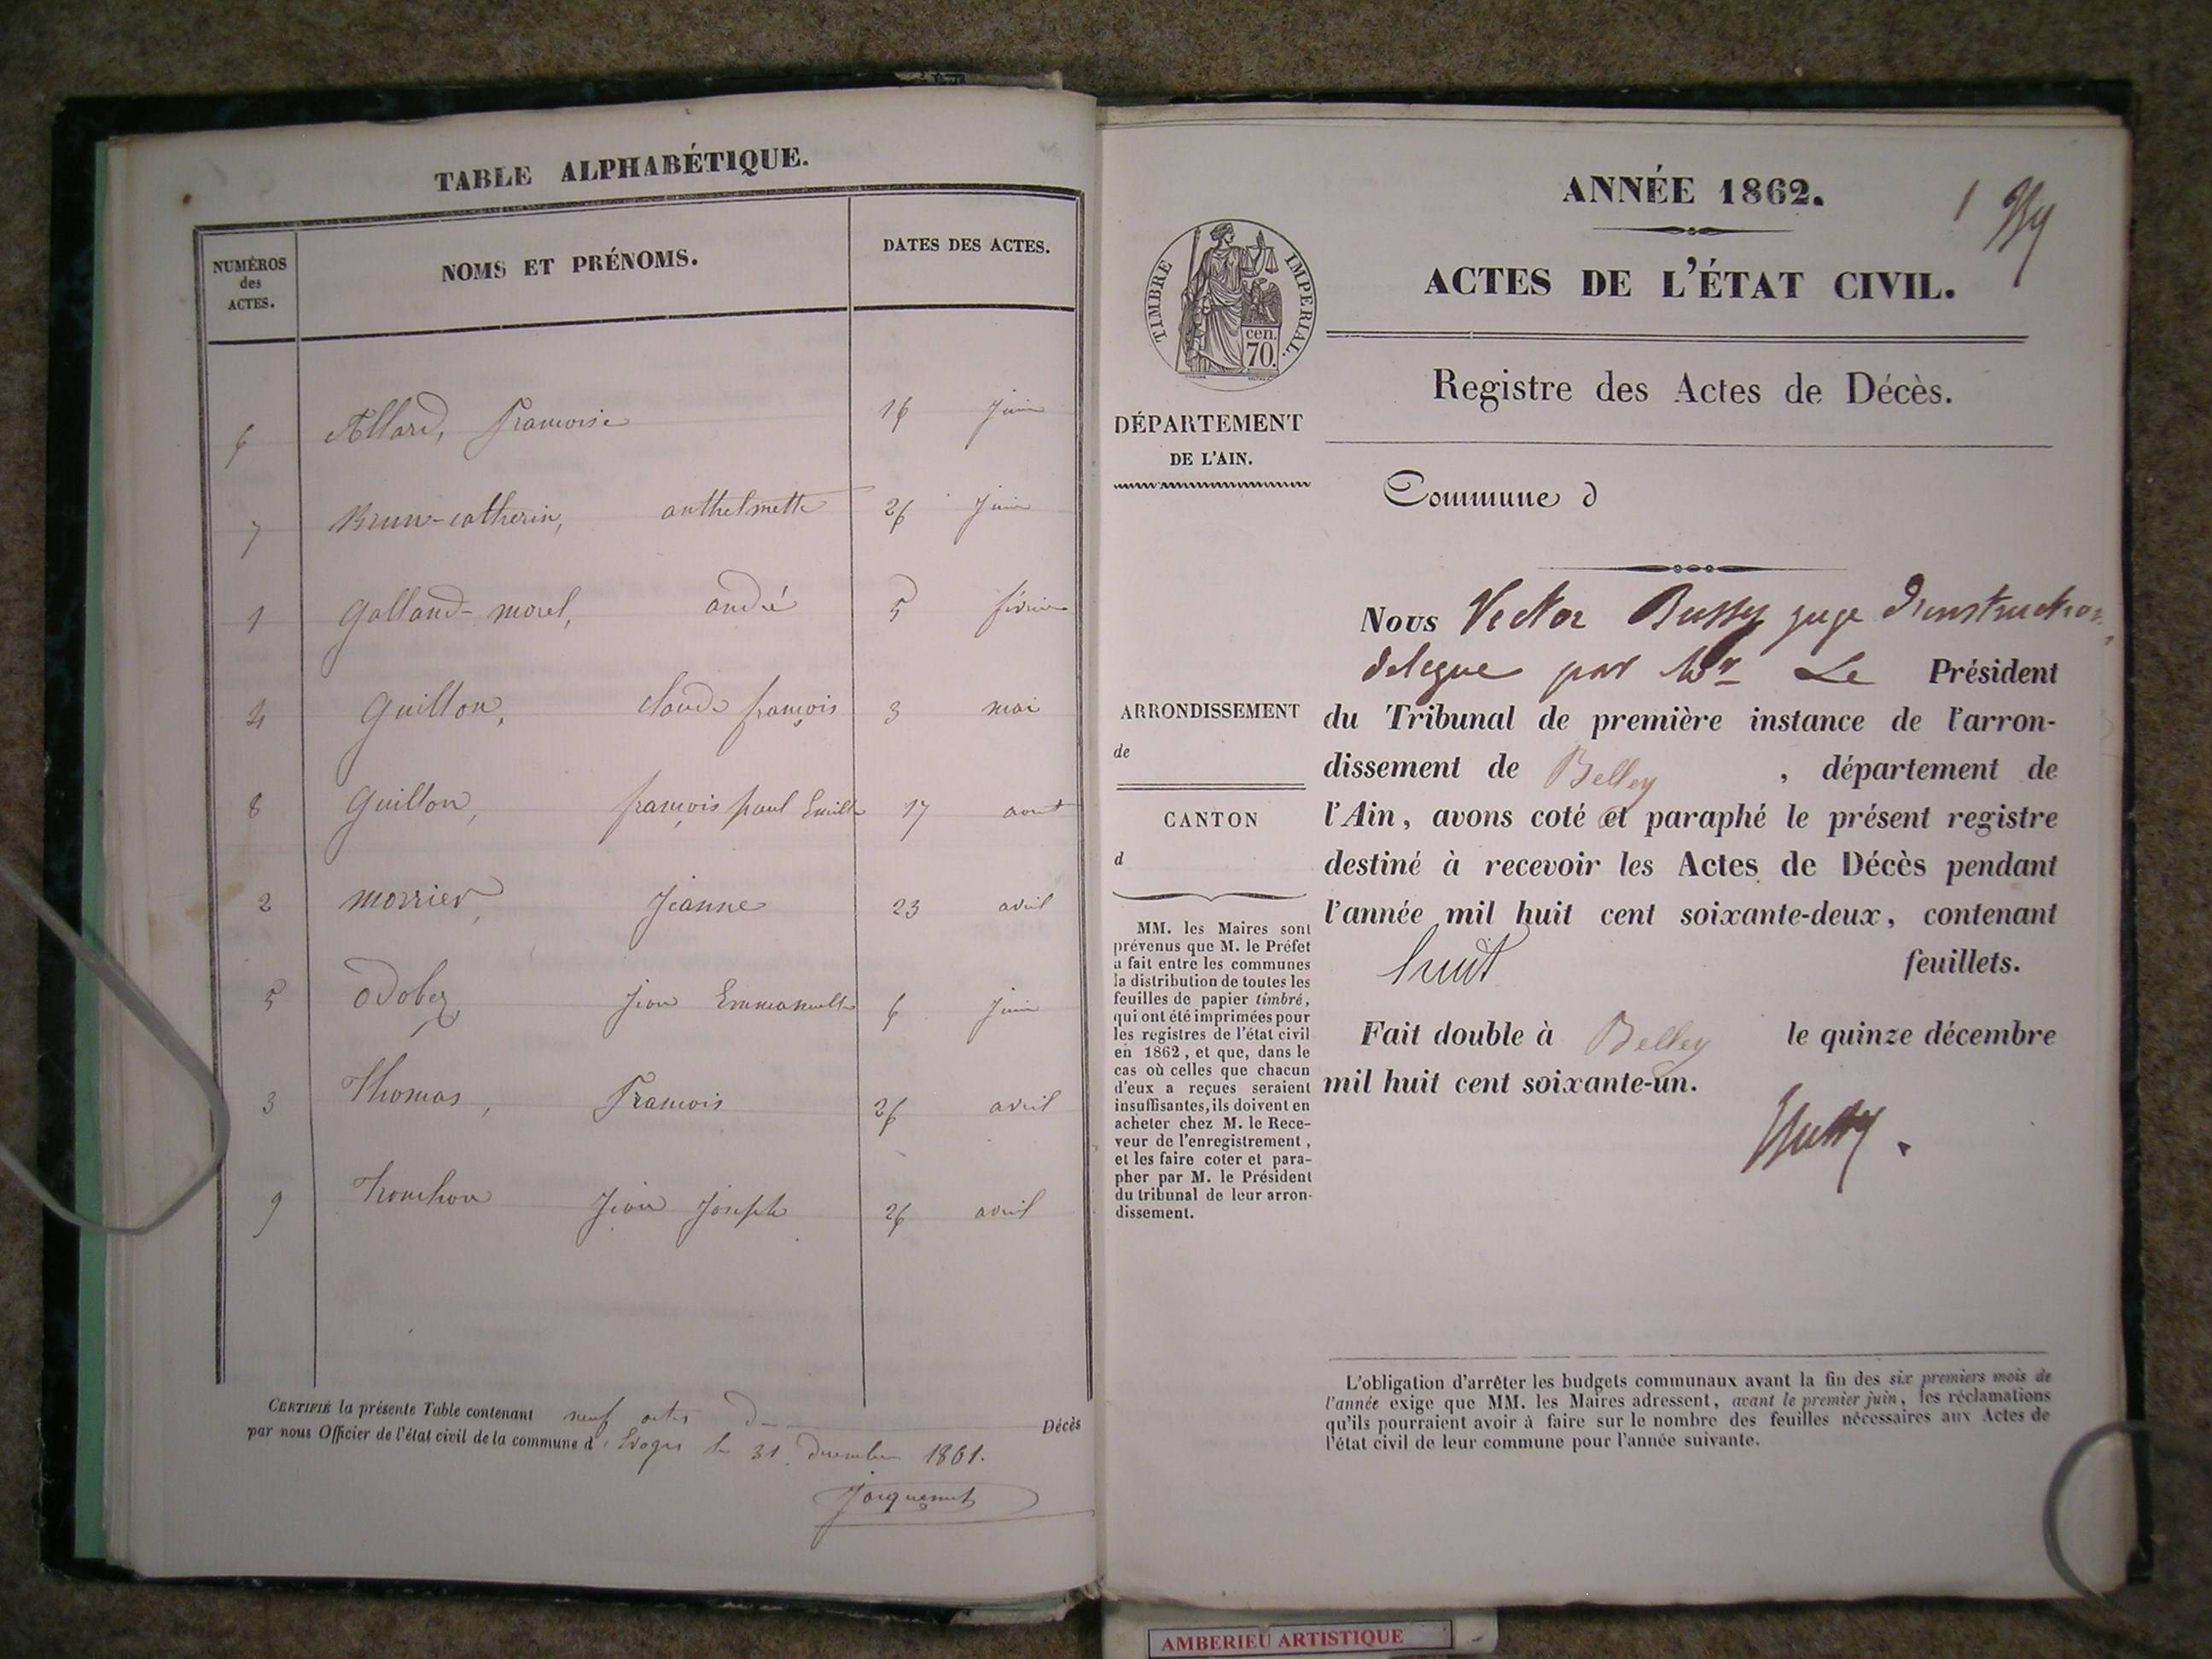 TABLE ALPHABÉTIQUE.
NUMÉROS
des
ACTES.
NOMS ET PRÉNOMS.
DATES DES ACTES.
6 Allard, Francoise 16 juin
7 Brun-catherin, anthelmette 26 juin
1 Galland-morel, andré 5 février
4 Guillon, claude françois 3 mai
8 Guillon, françois paul Emile 17 aout
2 morrier, Jeanne 23 avril
5 odobez jean Emmanuelle 6 juin
3 Thomas, Francois 26 avril
9 Jean Joseph 26 avril
CERTIFIÉ la présente Table contenant neuf actes d Décès
par nous Officier de l'état civil de la commune d' Evoges le 31 decembre 1861.
Jacquemet
ANNÉE 1862.
1
ACTES DE L'ÉTAT CIVIL.
TIMBRE IMPERIAL.
cen.
70.
Registre des Actes de Décès.
DÉPARTEMENT
DE L'AIN.
Commune d
ARRONDISSEMENT
de
CANTON
d
MM. les Maires sont
prévenus que M. le Préfet
a fait entre les communes
la distribution de toutes les
feuilles de papier timbré,
qui ont été imprimées pour
les registres de l'état civil
en 1862, et que, dans le
cas où celles que chacun
d'eux a reçues seraient
insuffisantes, ils doivent en
acheter chez M. le Rece-
veur de l'enregistrement,
et les faire coter et para-
pher par M. le Président
du tribunal de leur arron-
dissement.
Nous Victor Bussy juge d'instruction,
delegue par Mr Le Président
du Tribunal de première instance de l'arron-
dissement de Belley, département de
l'Ain, avons coté et paraphé le présent registre
destiné à recevoir les Actes de Décès pendant
l'année mil huit cent soixante-deux, contenant
huit feuillets.
Fait double à Belley le quinze décembre
mil huit cent soixante-un.
Bussy.
L'obligation d'arrêter les budgets communaux avant la fin des six premiers mois de
l'année exige que MM. les Maires adressent, avant le premier juin, les réclamations
qu'ils pourraient avoir à faire sur le nombre des feuilles nécessaires aux Actes de
l'état civil de leur commune pour l'année suivante.
AMBERIEU ARTISTIQUE